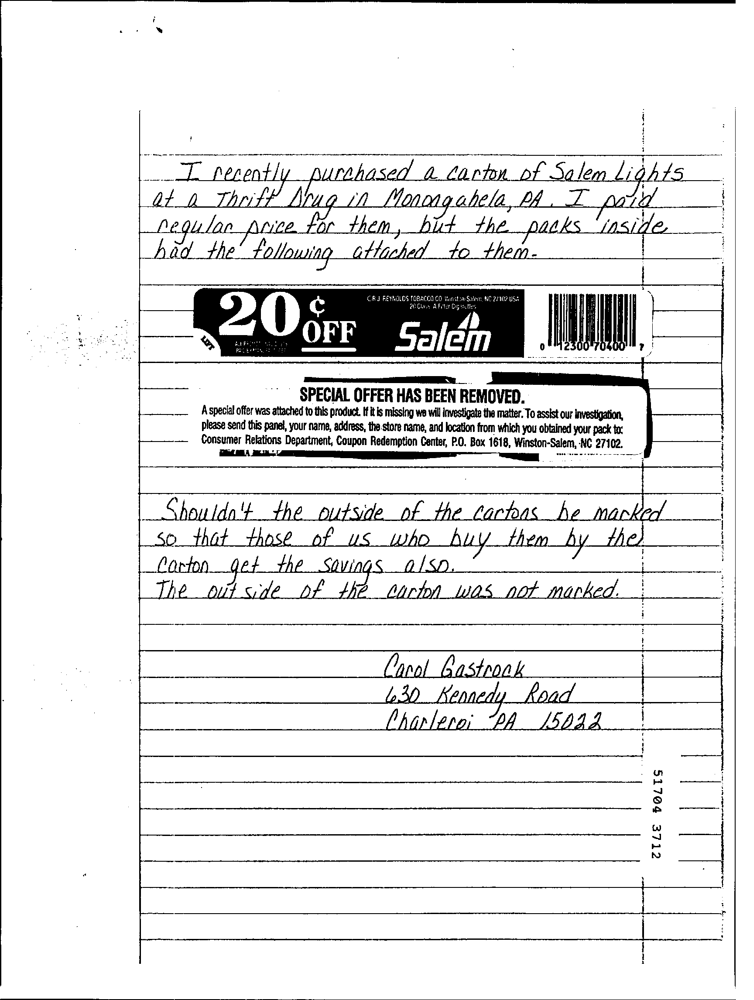 I recently purchased a carton of Salem Lights
at a Thrift Drug in Monongahela, PA. I paid
regular price for them, but the packs inside
had the following attached to them-
20¢ OFF
LIFT
© R.J. REYNOLDS TOBACCO CO. Winston-Salem, NC 27102 USA
20 Class A Filter Cigarettes
Salem
0 12300 70400 7
SPECIAL OFFER HAS BEEN REMOVED.
A special offer was attached to this product. If it is missing we will investigate the matter. To assist our investigation,
please send this panel, your name, address, the store name, and location from which you obtained your pack to:
Consumer Relations Department, Coupon Redemption Center, P.O. Box 1618, Winston-Salem, NC 27102.
Shouldn't the outside of the cartons be marked
so that those of us who buy them by the
carton get the savings also.
The outside of the carton was not marked.
Carol Gastronk
630 Kennedy Road
Charleroi PA 15022
51704 3712